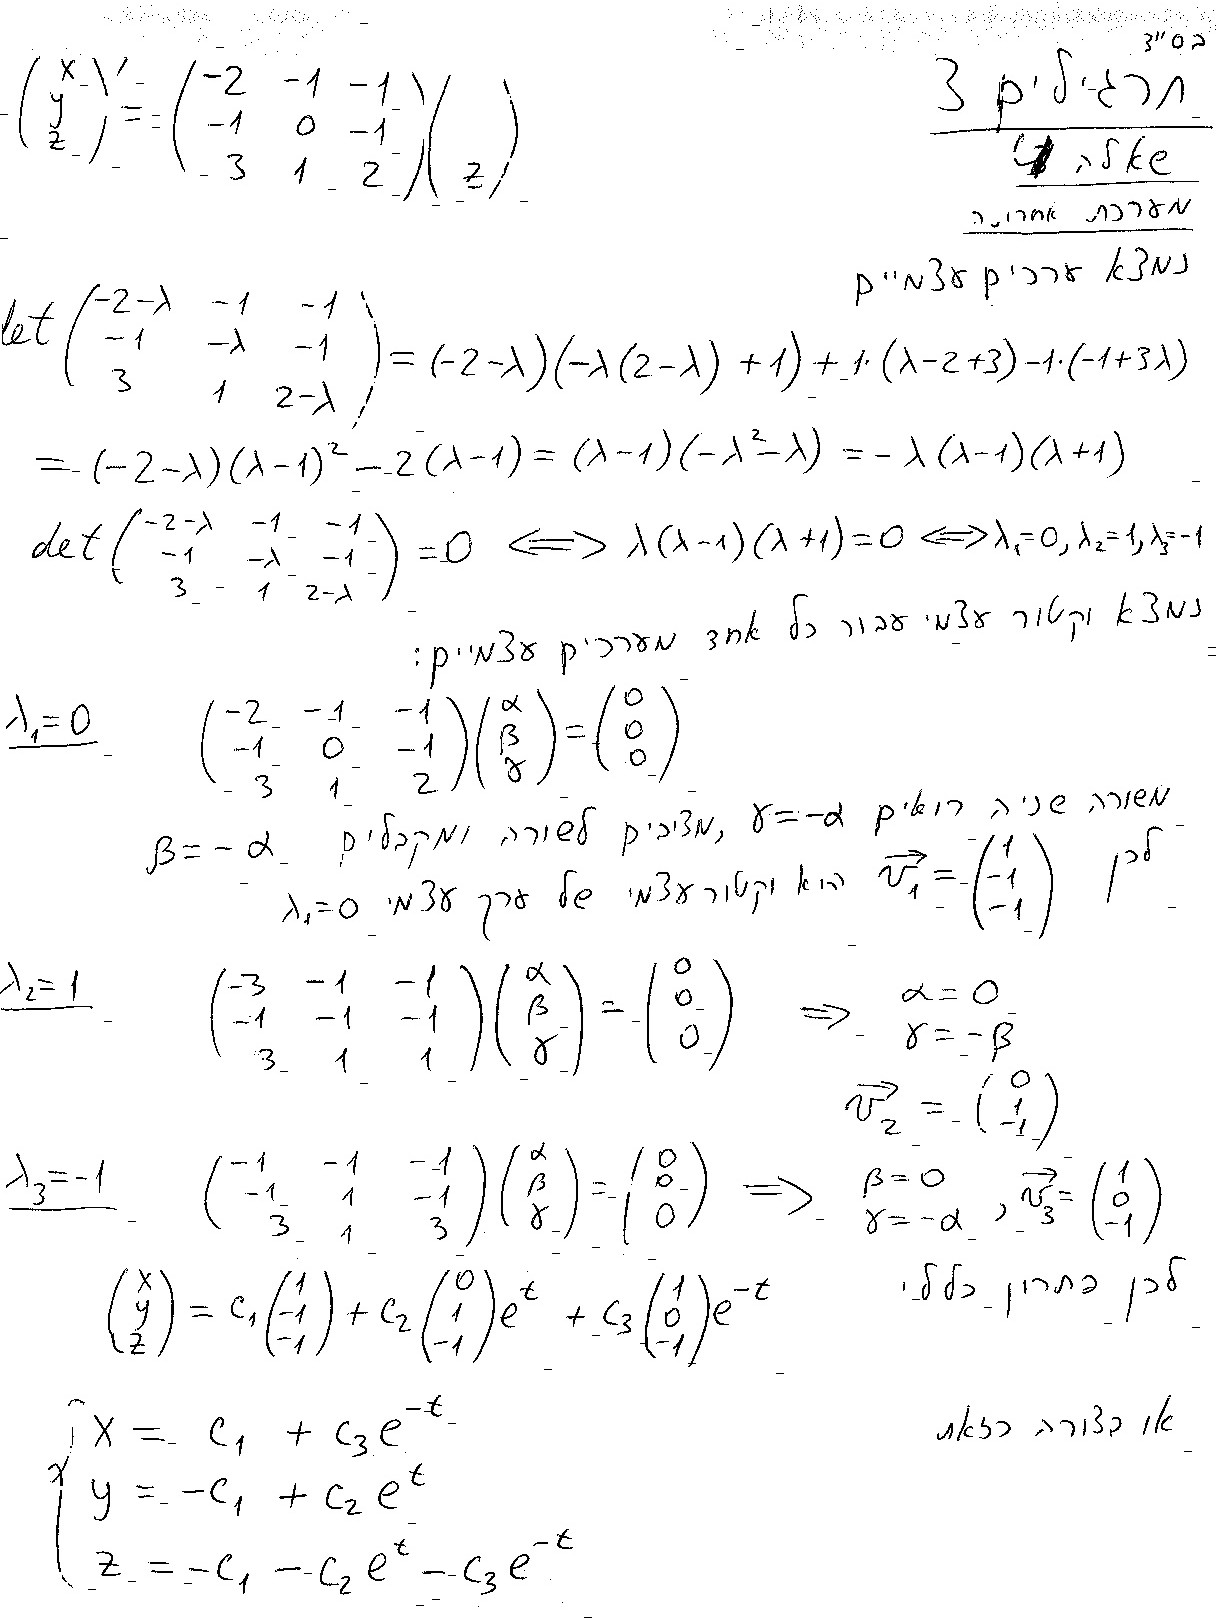 בס"ד
תרגילים 3
שאלה
מערכת אחרונה
(x y z)' = (-2 -1 -1; -1 0 -1; 3 1 2)( z)
נמצא ערכים עצמיים
det(-2-λ -1 -1; -1 -λ -1; 3 1 2-λ) = (-2-λ)(-λ(2-λ)+1)+1·(λ-2+3)-1·(-1+3λ)
= (-2-λ)(λ-1)² - 2(λ-1) = (λ-1)(-λ²-λ) = -λ(λ-1)(λ+1)
det(-2-λ -1 -1; -1 -λ -1; 3 1 2-λ) = 0 ⟺ λ(λ-1)(λ+1)=0 ⟺ λ₁=0, λ₂=1, λ₃=-1
נמצא וקטור עצמי עבור כל אחד מערכים עצמיים:
λ₁=0 (-2 -1 -1; -1 0 -1; 3 1 2)(α β γ) = (0 0 0)
משורה שניה רואים γ=-α, מציבים לשורה ומקבלים β=-α
לכן v₁→ = (1 -1 -1) הוא וקטור עצמי של ערך עצמי λ₁=0
λ₂=1 (-3 -1 -1; -1 -1 -1; 3 1 1)(α β γ) = (0 0 0) ⟹ α=0
γ=-β
v₂→ = (0 1 -1)
λ₃=-1 (-1 -1 -1; -1 1 -1; 3 1 3)(α β γ) = (0 0 0) ⟹ β=0
γ=-α , v₃→ = (1 0 -1)
לכן פתרון כללי
(x y z) = c₁(1 -1 -1) + c₂(0 1 -1)e^t + c₃(1 0 -1)e^-t
או בצורה כזאת
x = c₁ + c₃e^-t
y = -c₁ + c₂e^t
z = -c₁ - c₂e^t - c₃e^-t